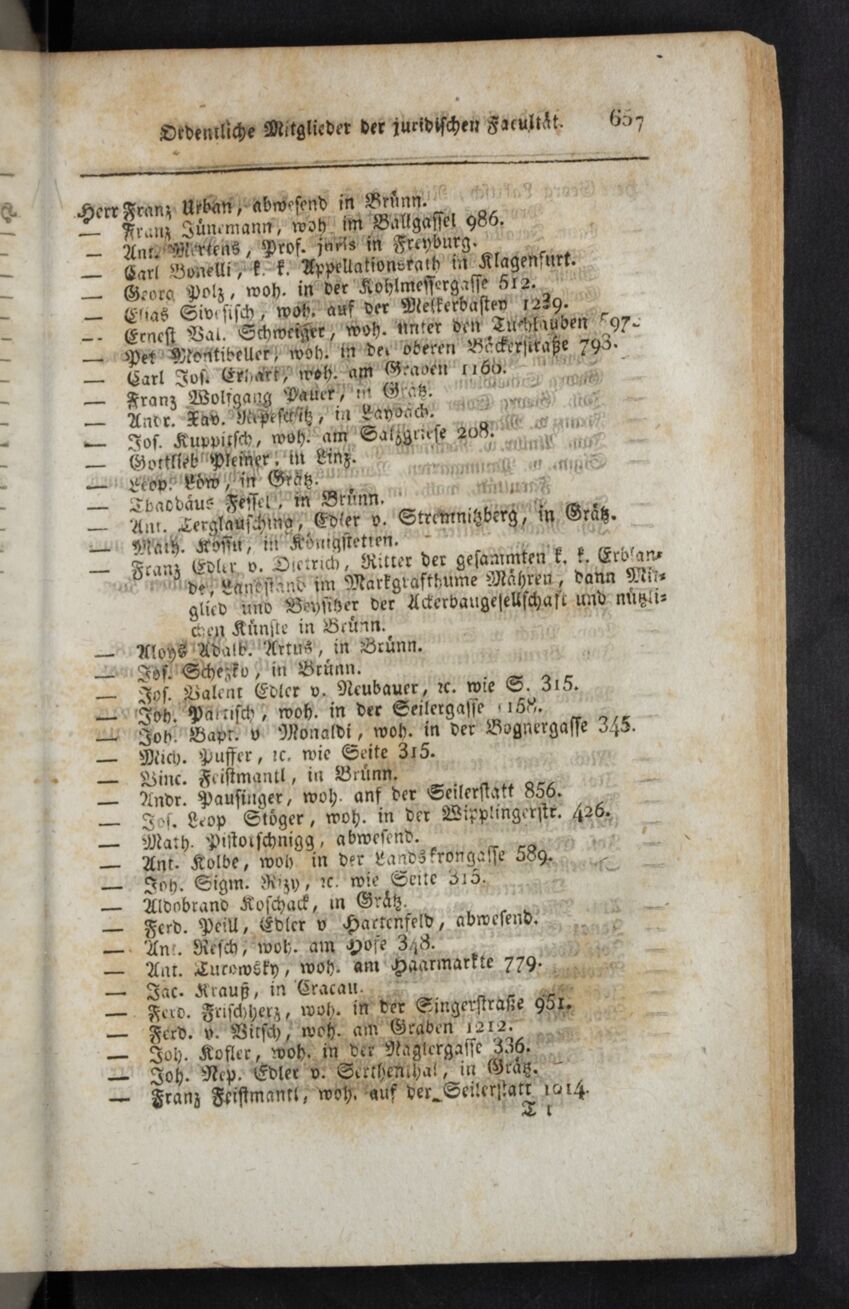 Ordentliche Mitglieder der juridischen Facultät. 657
Herr Franz Urban, abwesend in Brünn.
— Franz Jünemann, woh. im Ballgassel 986.
— Ant. Mertens, Prof. juris in Freyburg.
— Carl Bonelli, k. k. Appellationsrath in Klagenfurt.
— Georg Polz, woh. in der Kohlmessergasse 512.
— Elias Sivesisch, woh. auf der Melkerbastey 1239.
— Ernest Val. Schweiger, woh. unter den Tuchlauben 597.
— Pet Montibeller, woh. in der oberen Bäckerstraße 793.
— Carl Jos. Erhart, woh. am Graben 1166.
— Franz Wolfgang Pauer, in Grätz.
— Andr. Xav. Repeschitz, in Laybach.
— Jos. Kuppitsch, woh. am Salzgriese 208.
— Gottlieb Pleiner, in Linz.
— Leop. Löw, in Grätz.
— Thaddäus Fessel, in Brünn.
— Ant. Terglausching, Edler v. Stremnitzberg, in Grätz.
— Math. Kossu, in Königstetten.
— Franz Edler v. Dietrich, Ritter der gesammten k. k. Erblan-
de, Landstand im Markgrafthume Mähren, dann Mit-
glied und Beysitzer der Ackerbaugesellschaft und nützli-
chen Künste in Brünn.
— Aloys Adalb. Artus, in Brünn.
— Jos. Schezko, in Brünn.
— Jos. Valent Edler v. Neubauer, ꝛc. wie S. 315.
— Joh. Partisch, woh. in der Seilergasse 1158.
— Joh. Bapt. v Monaldi, woh. in der Bognergasse 345.
— Mich. Puffer, ꝛc. wie Seite 315.
— Vinc. Feistmantl, in Brünn.
— Andr. Pausinger, woh. auf der Seilerstatt 856.
— Jos. Leop Stöger, woh. in der Wipplingerstr. 426.
— Math. Pistotschnigg, abwesend.
— Ant. Kolbe, woh in der Landskrongasse 589.
— Joh. Sigm. Rizy, ꝛc. wie Seite 315.
— Aldobrand Koschack, in Grätz.
— Ferd. Peill, Edler v Hartenfeld, abwesend.
— Ant. Resch, woh. am Hofe 348.
— Ant. Turowsky, woh. am Haarmarkte 779.
— Jac. Krauß, in Cracau.
— Ferd. Frischherz, woh. in der Singerstraße 951.
— Ferd. v. Vitsch, woh. am Graben 1212.
— Joh. Kofler, woh. in der Naglergasse 336.
— Joh. Nep. Edler v. Serthenthal, in Grätz.
— Franz Feistmantl, woh. auf der Seilerstatt 1014.
T t